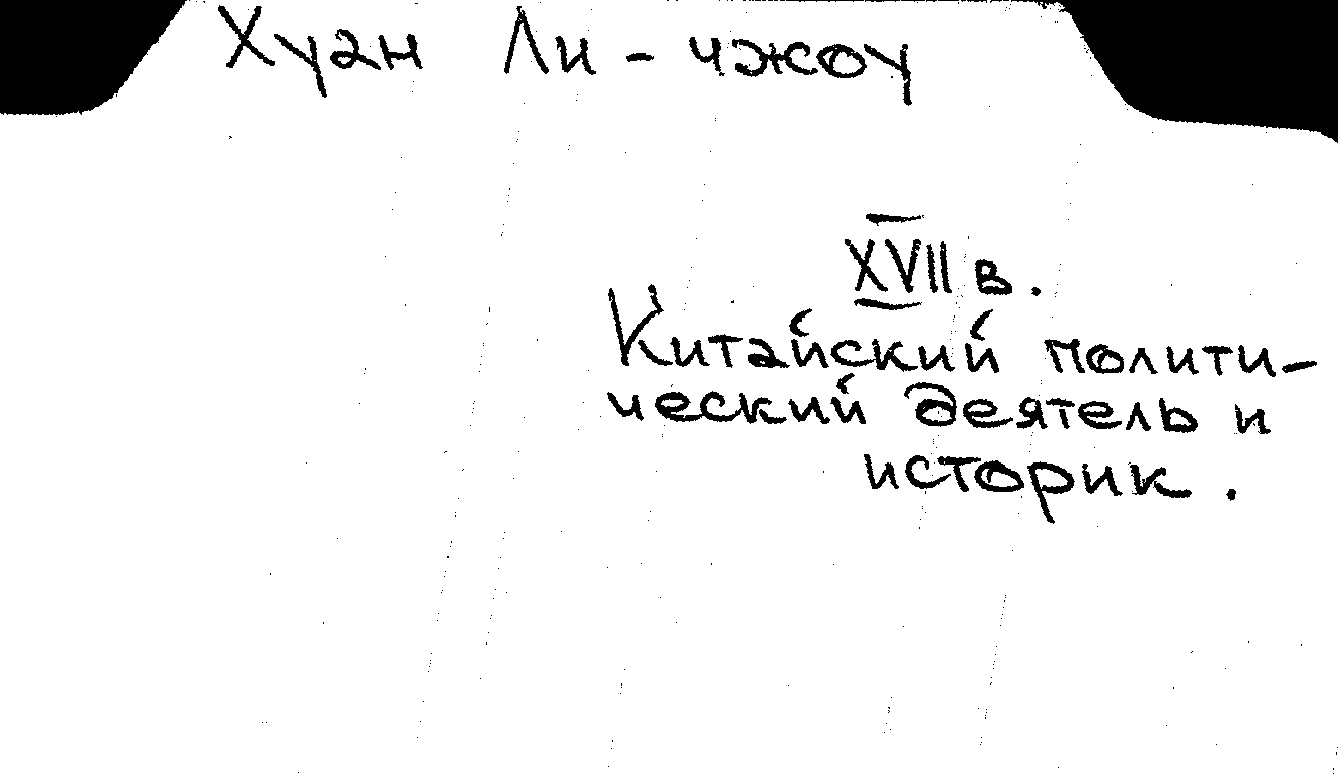 Хуан Ли-чжоу
XVII в.
Китайский полити-
ческий деятель и
историк.